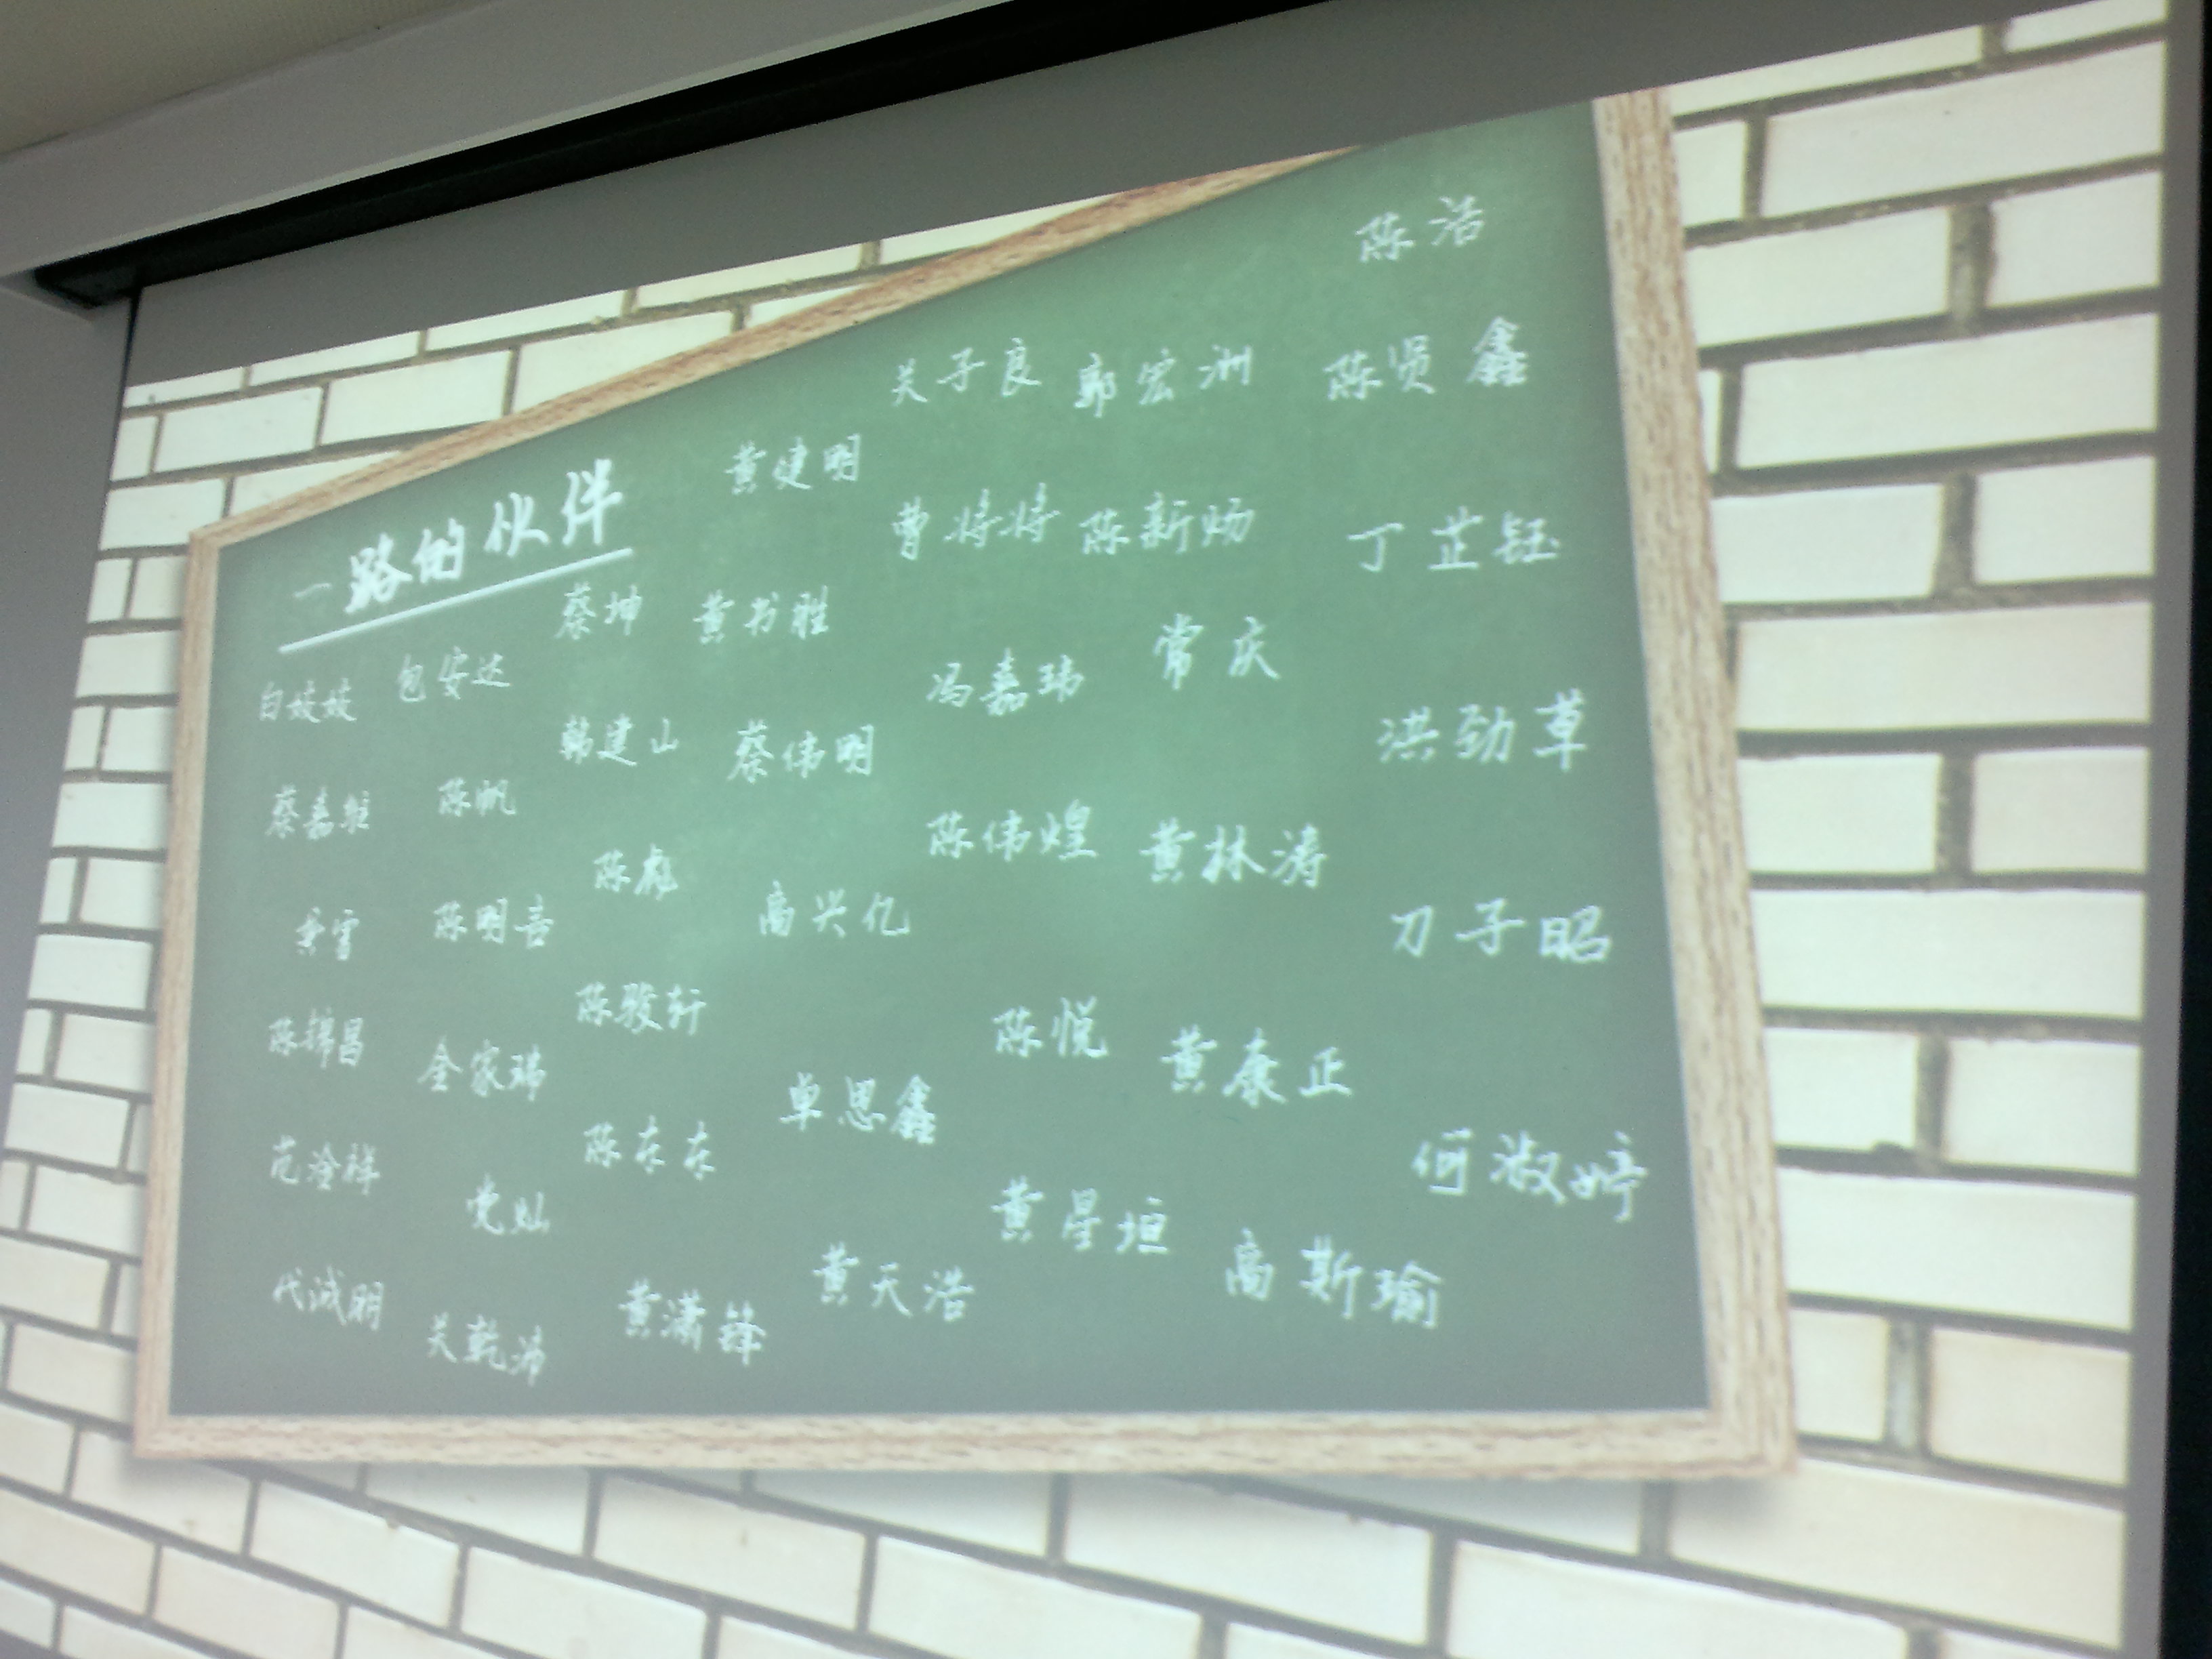 一路的伙伴
陈洁
关子良 郭宏洲 陈贤鑫
黄建明
曹婷婷 陈新炀 丁芷钰
蔡坤 黄书胜
白姣姣 包安达 冯嘉玮 常庆
韩建山 蔡伟明 洪劲草
蔡嘉维 陈帆
陈彪 陈伟煌 黄林涛
陈明喜 高兴亿 刀子昭
陈锦昌 陈骏轩
全家瑞 陈悦 黄康正
范冷祥 陈东东 单思鑫
党灿 黄星垣 何淑婷
代诚明 黄潇锋 黄天浩 高斯瑜
关乾沛